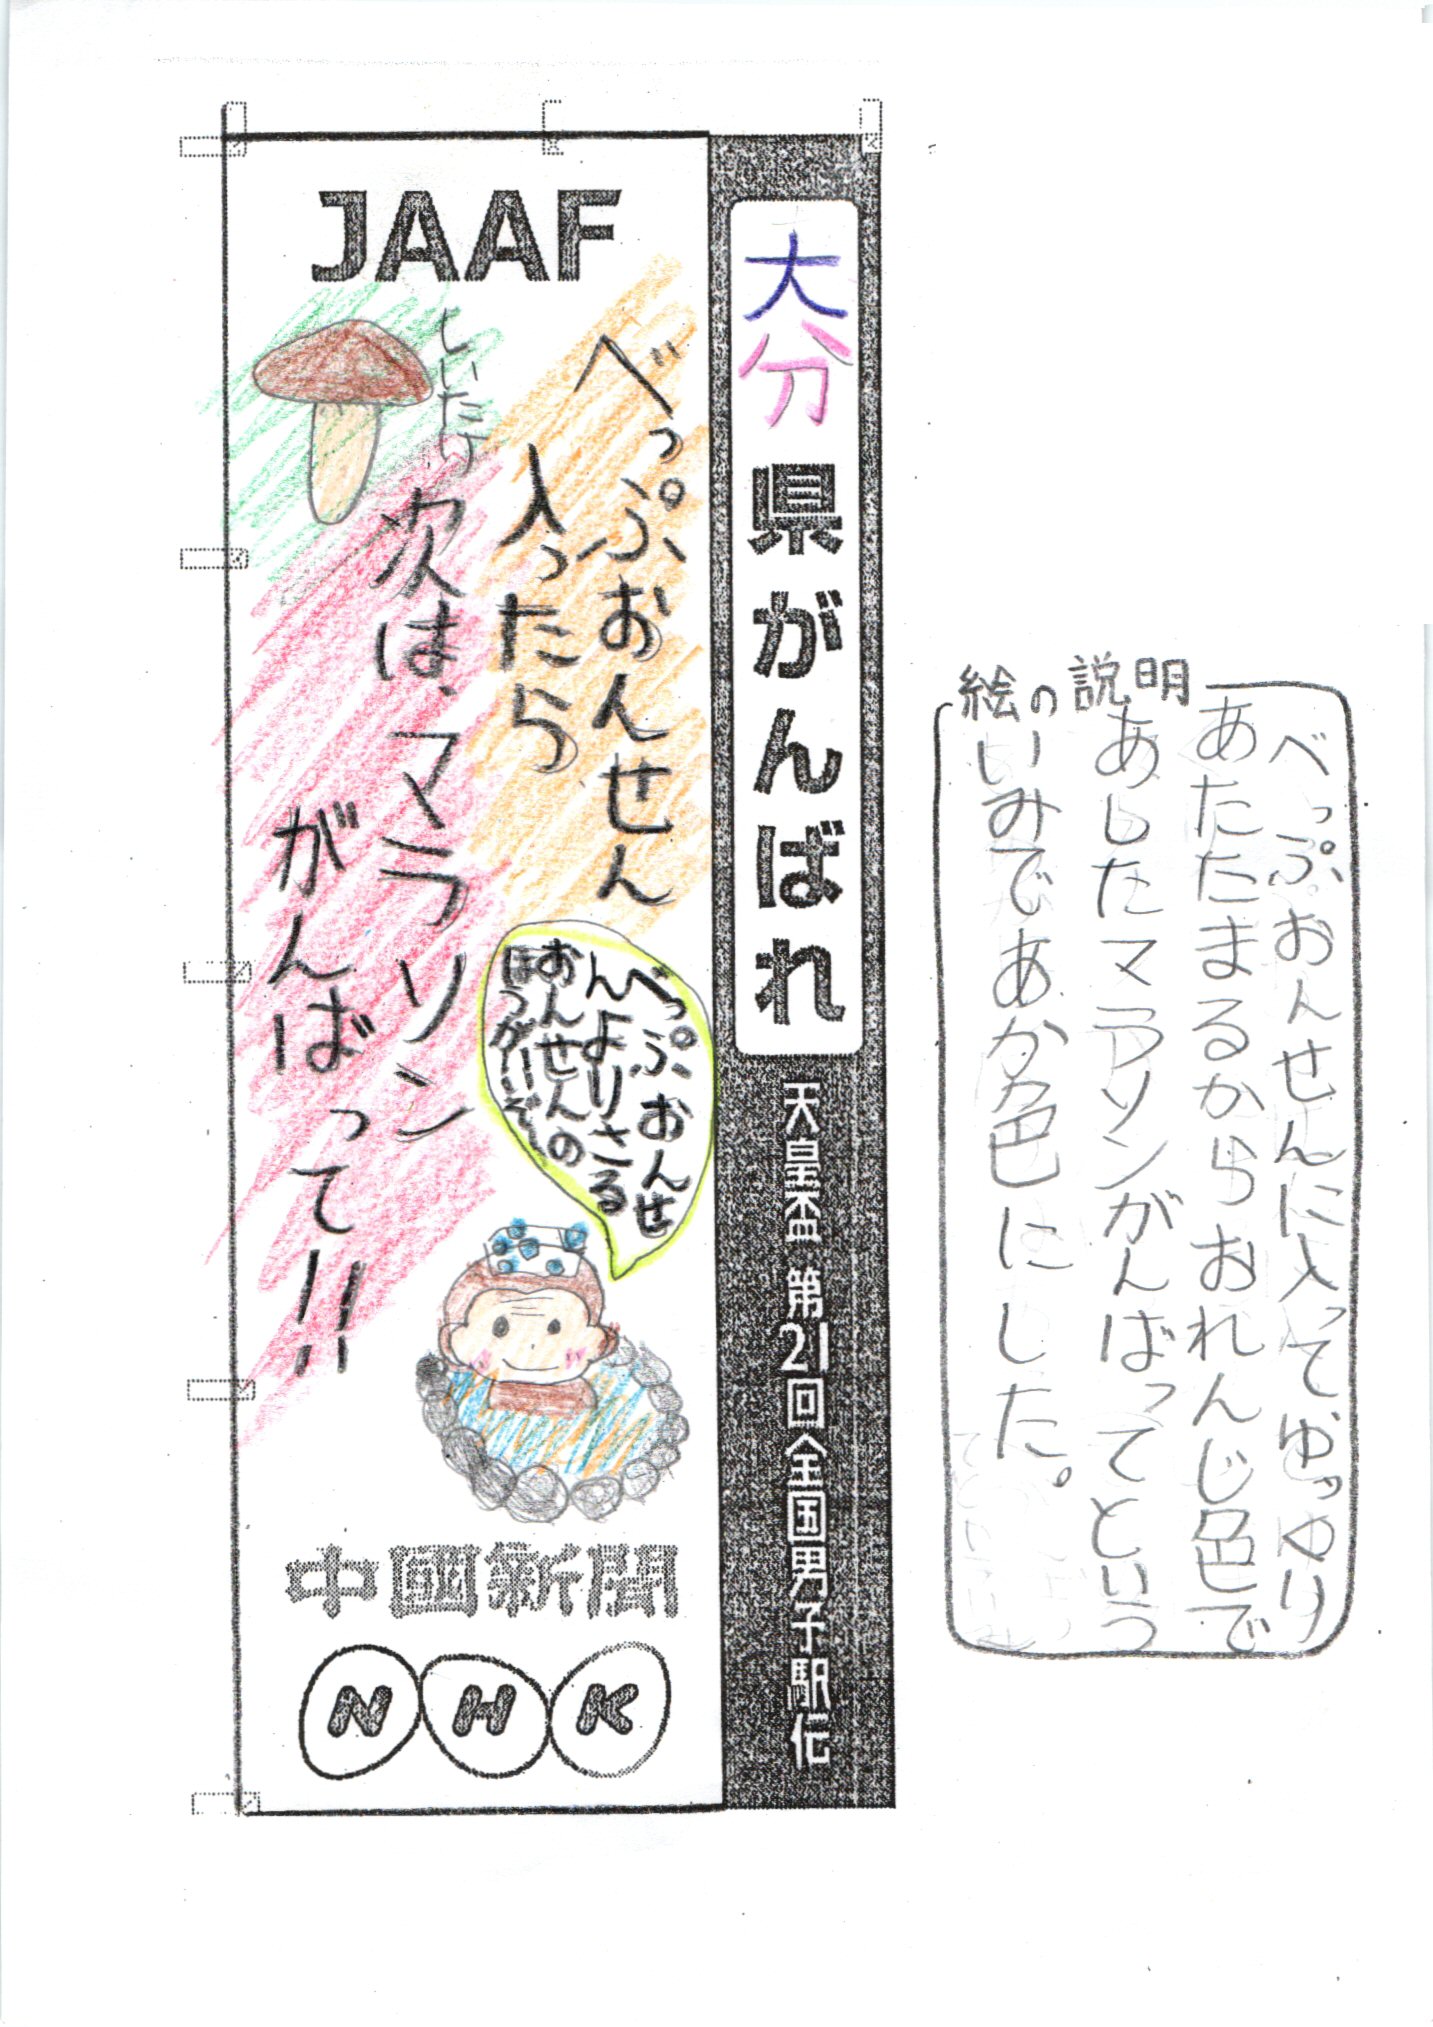 JAAF
大分県がんばれ
天皇盃 第21回全国男子駅伝
べっぷおんせん
入ったら
しいたけ
次は、マラソン
がんばって!!!
べっぷおんせ
んよりさる
おんせんの
ほうがいいぞー
中國新聞
NHK
絵の説明
べっぷおんせんに入って、ゆっくり
あたたまるからおれんじ色で
あしたマラソンがんばってという
いみであか色にした。